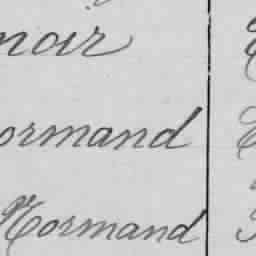 noir
ormand
Normand